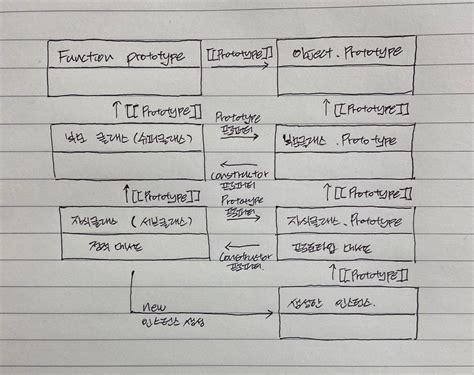 Function prototype
[[Prototype]]
Object.Prototype
↑[[Prototype]]
↑[[Prototype]]
부모 클래스 (슈퍼클래스)
Prototype
프로퍼티
부모클래스.Prototype
Constructor
프로퍼티
↑[[Prototype]]
↑[[Prototype]]
자식클래스 (서브클래스)
Prototype
프로퍼티
자식클래스.Prototype
정적 메서드
Constructor
프로퍼티
프로토타입 메서드
↑[[Prototype]]
new
인스턴스 생성
생성한 인스턴스.